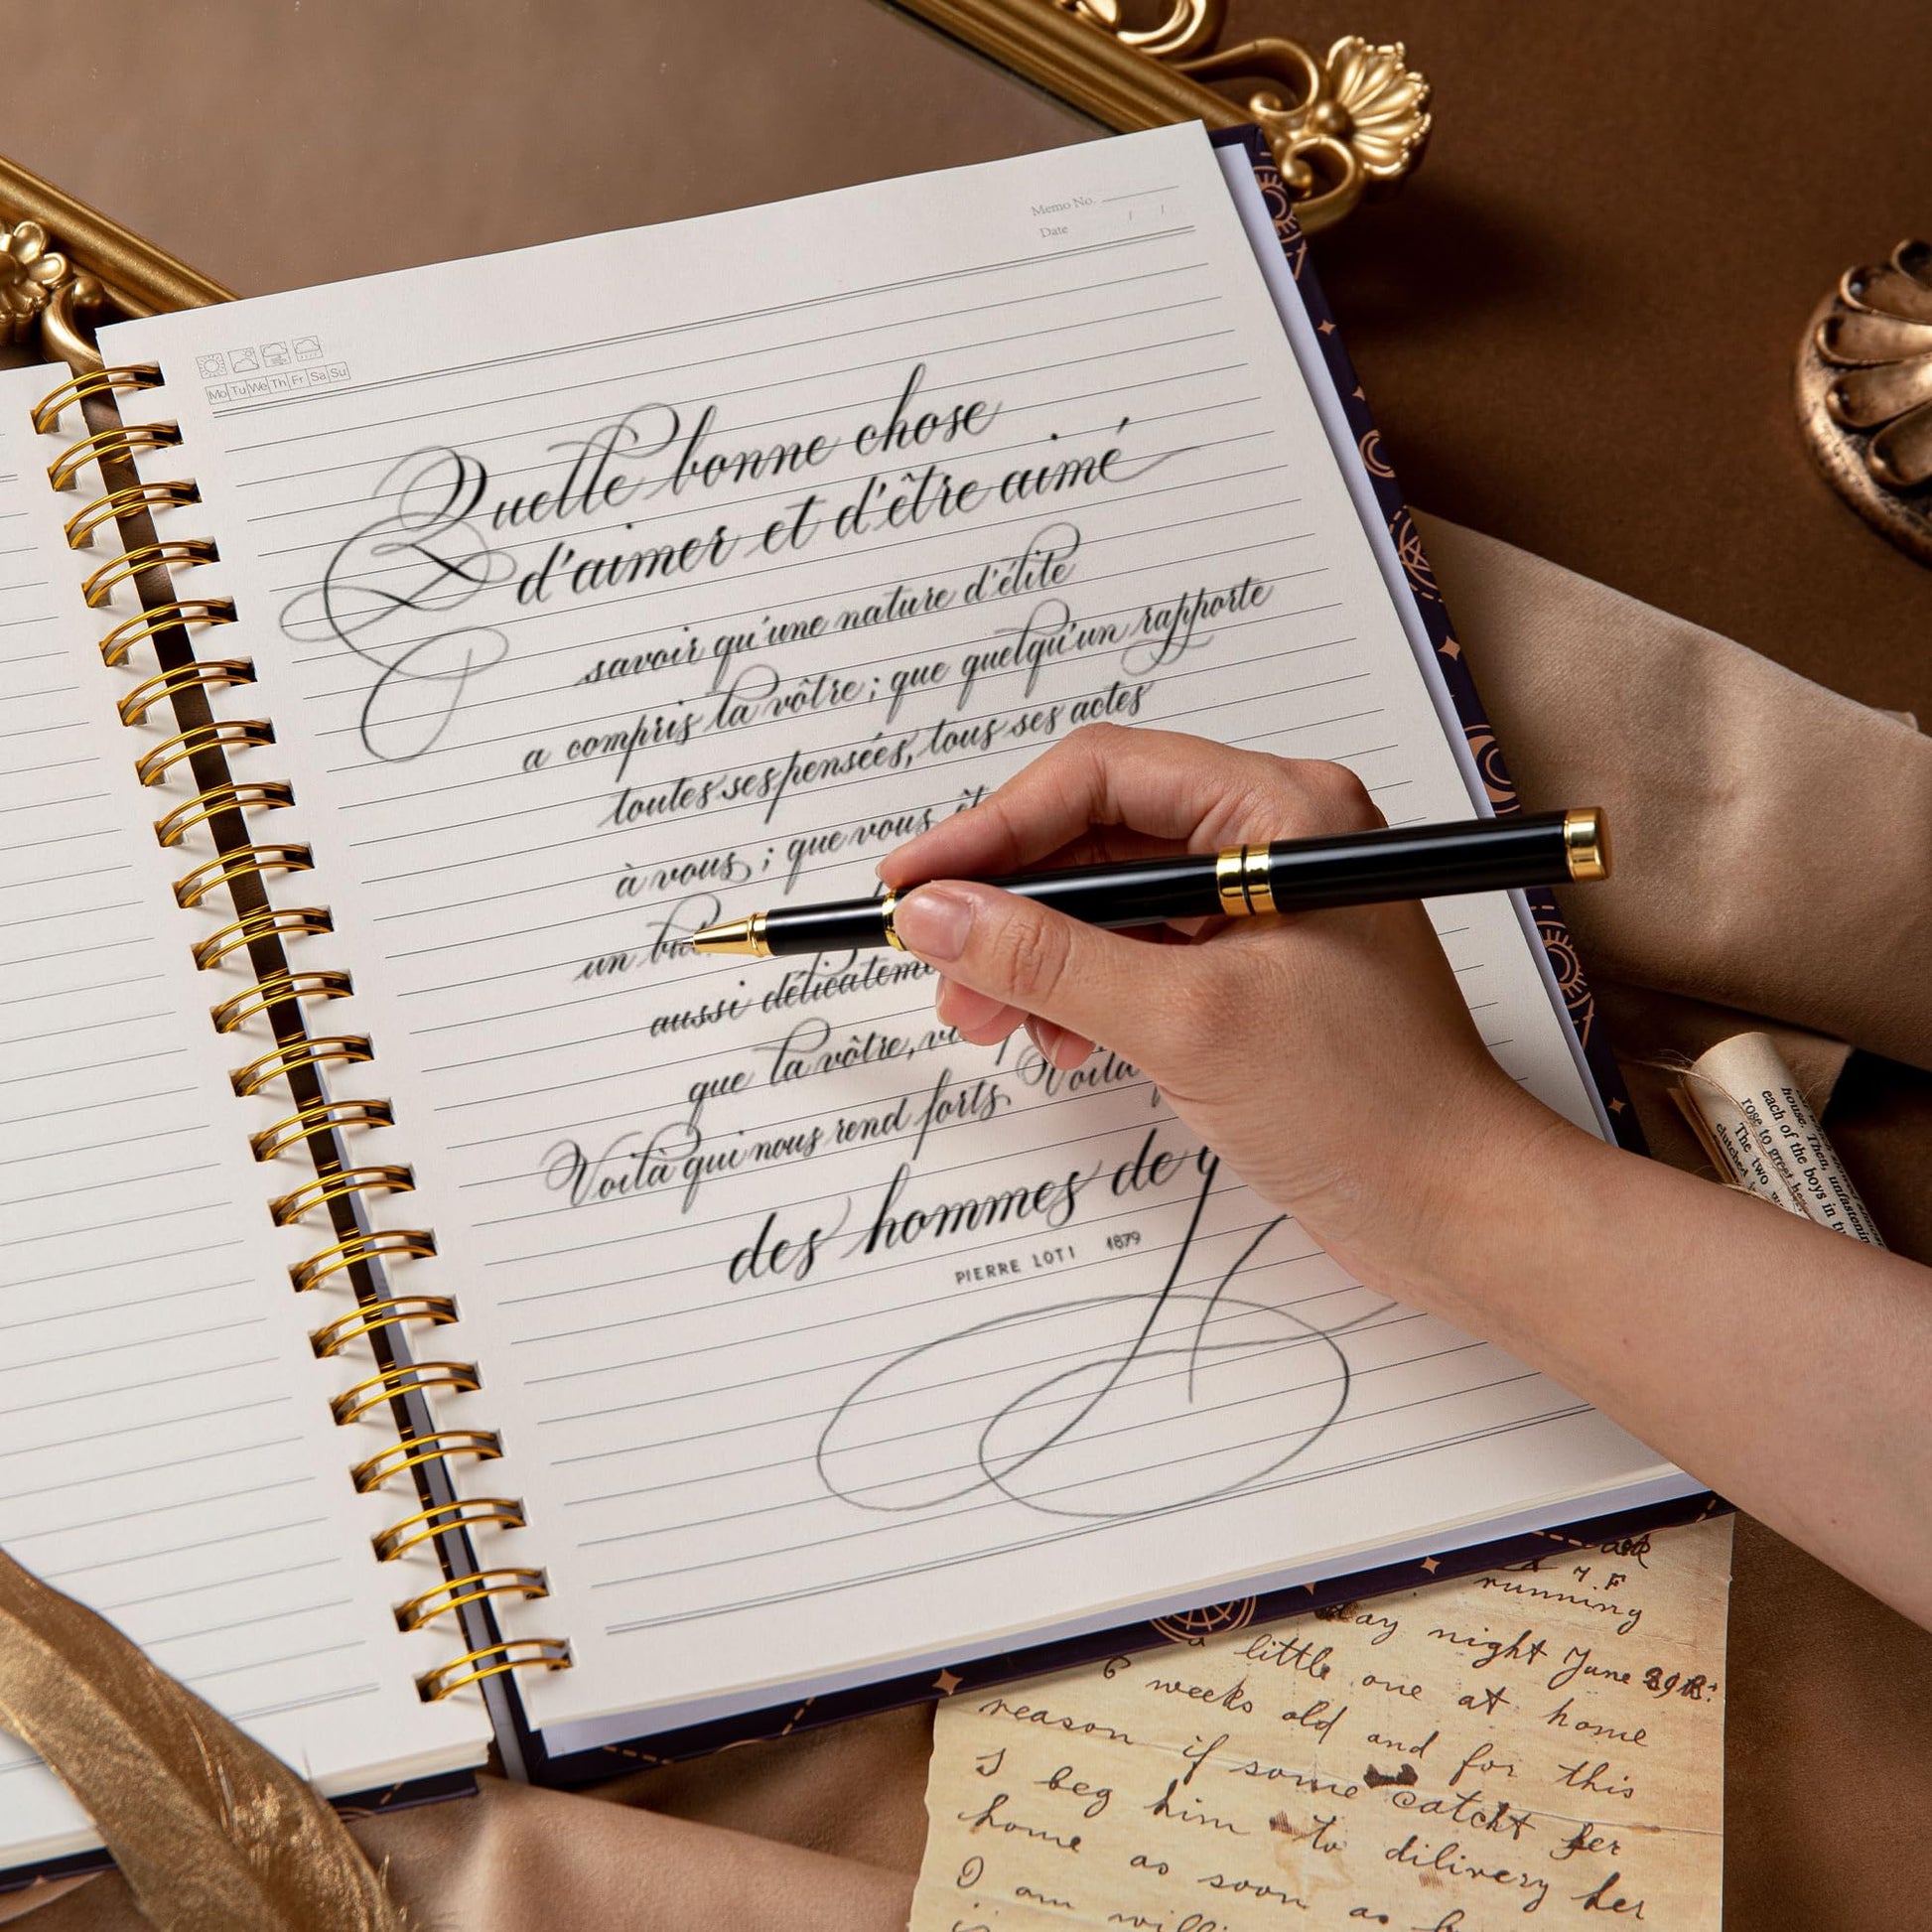 Memo No.
Date / /
Mo Tu We Th Fr Sa Su
Quelle bonne chose
d'aimer et d'être aimé
savoir qu'une nature d'élite
a compris la vôtre ; que quelqu'un rapporte
toutes ses pensées, tous ses actes
à vous ; que vous
un
aussi
que la vôtre,
Voilà qui nous rend forts. Voilà
des hommes de
PIERRE LOTI 1879
house. Then, unfastening
each of the boys in
rose to greet
The two
clutched
running
night June
little one at home
6 weeks old and for this
reason if some catcht her
I beg him to dilivery her
home as soon as
I am